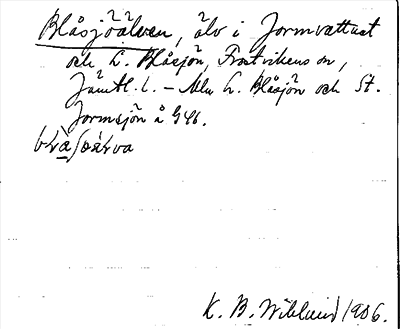 Blåsjöälven, älv i Jormvattnet
och L. Blåsjön, Frostvikens sn,
Jämtl. l. – Mln L. Blåsjön och St.
Jormsjön å G46.
K. B. Wiklund 1906.